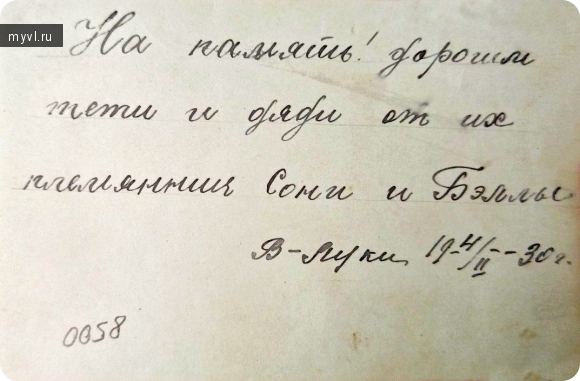 myvl.ru
На память! дорогим
тети и дяди от их
племянниц Сони и Бэллы
В-Луки 19-4/II-30 г.
0058